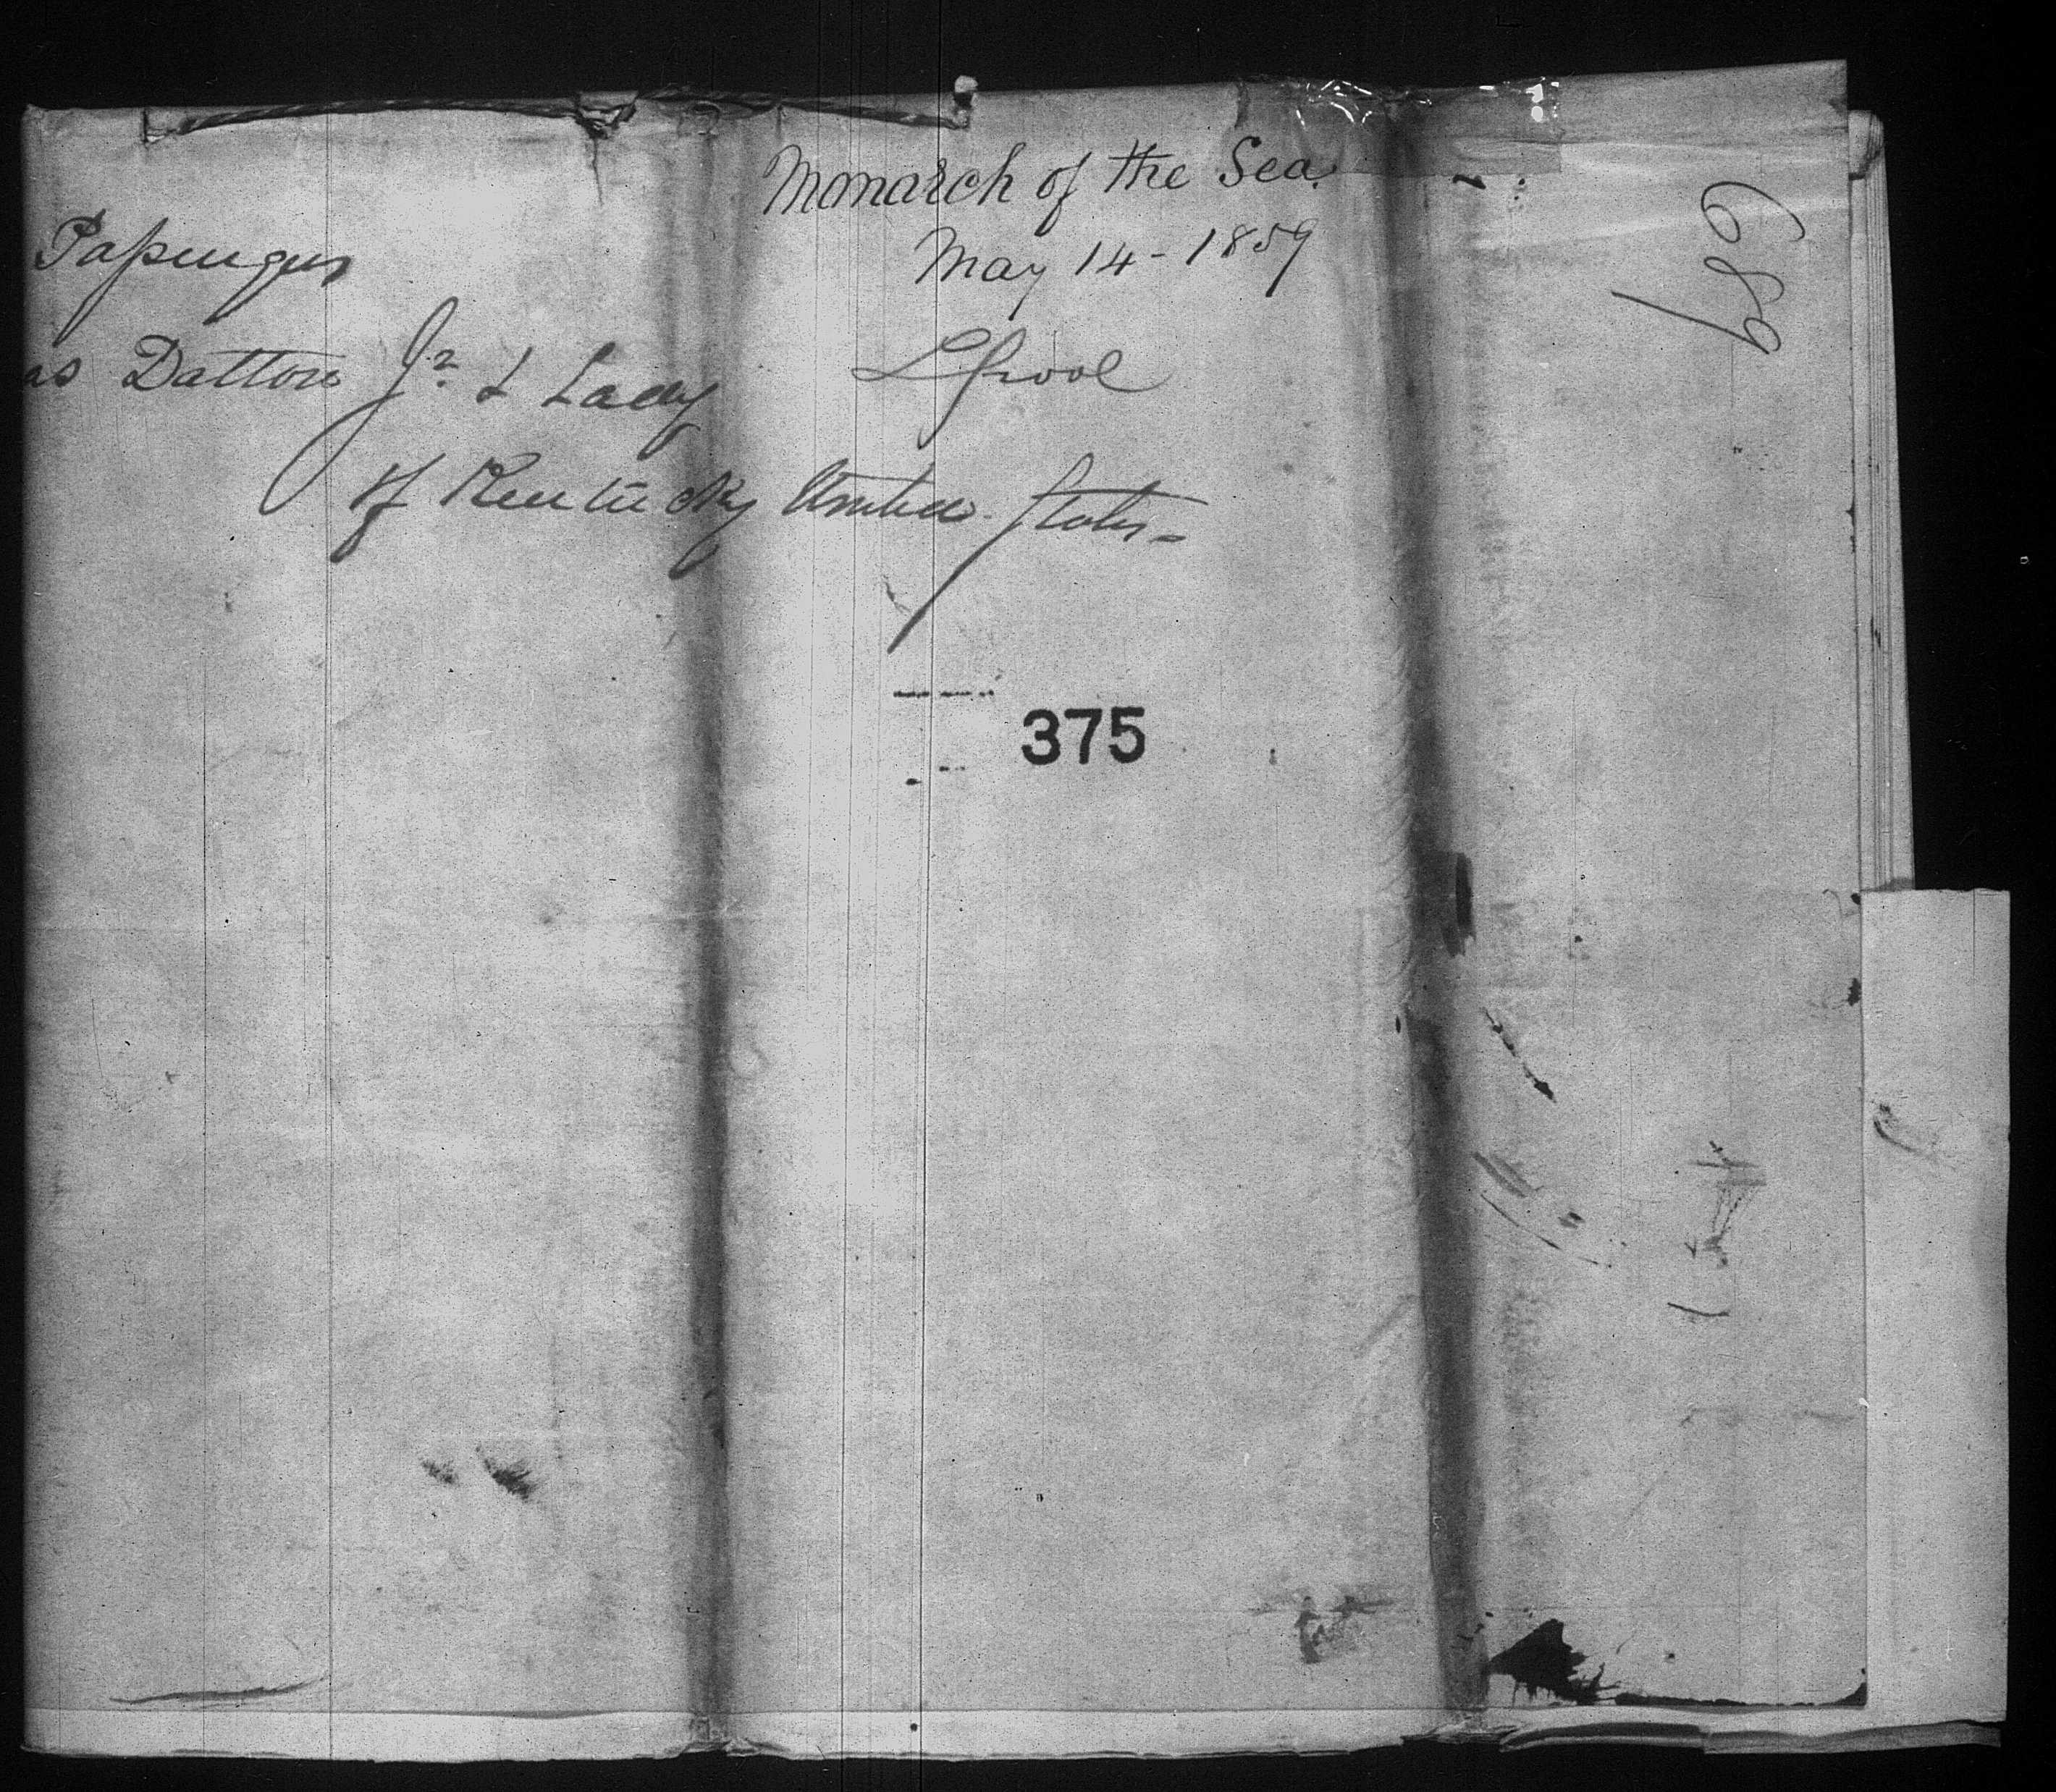 Monarch of the Sea.
May 14 - 1859
Lpool
Passengers
as Datton Jr. & Lady
of Kentucky United States -
375
689